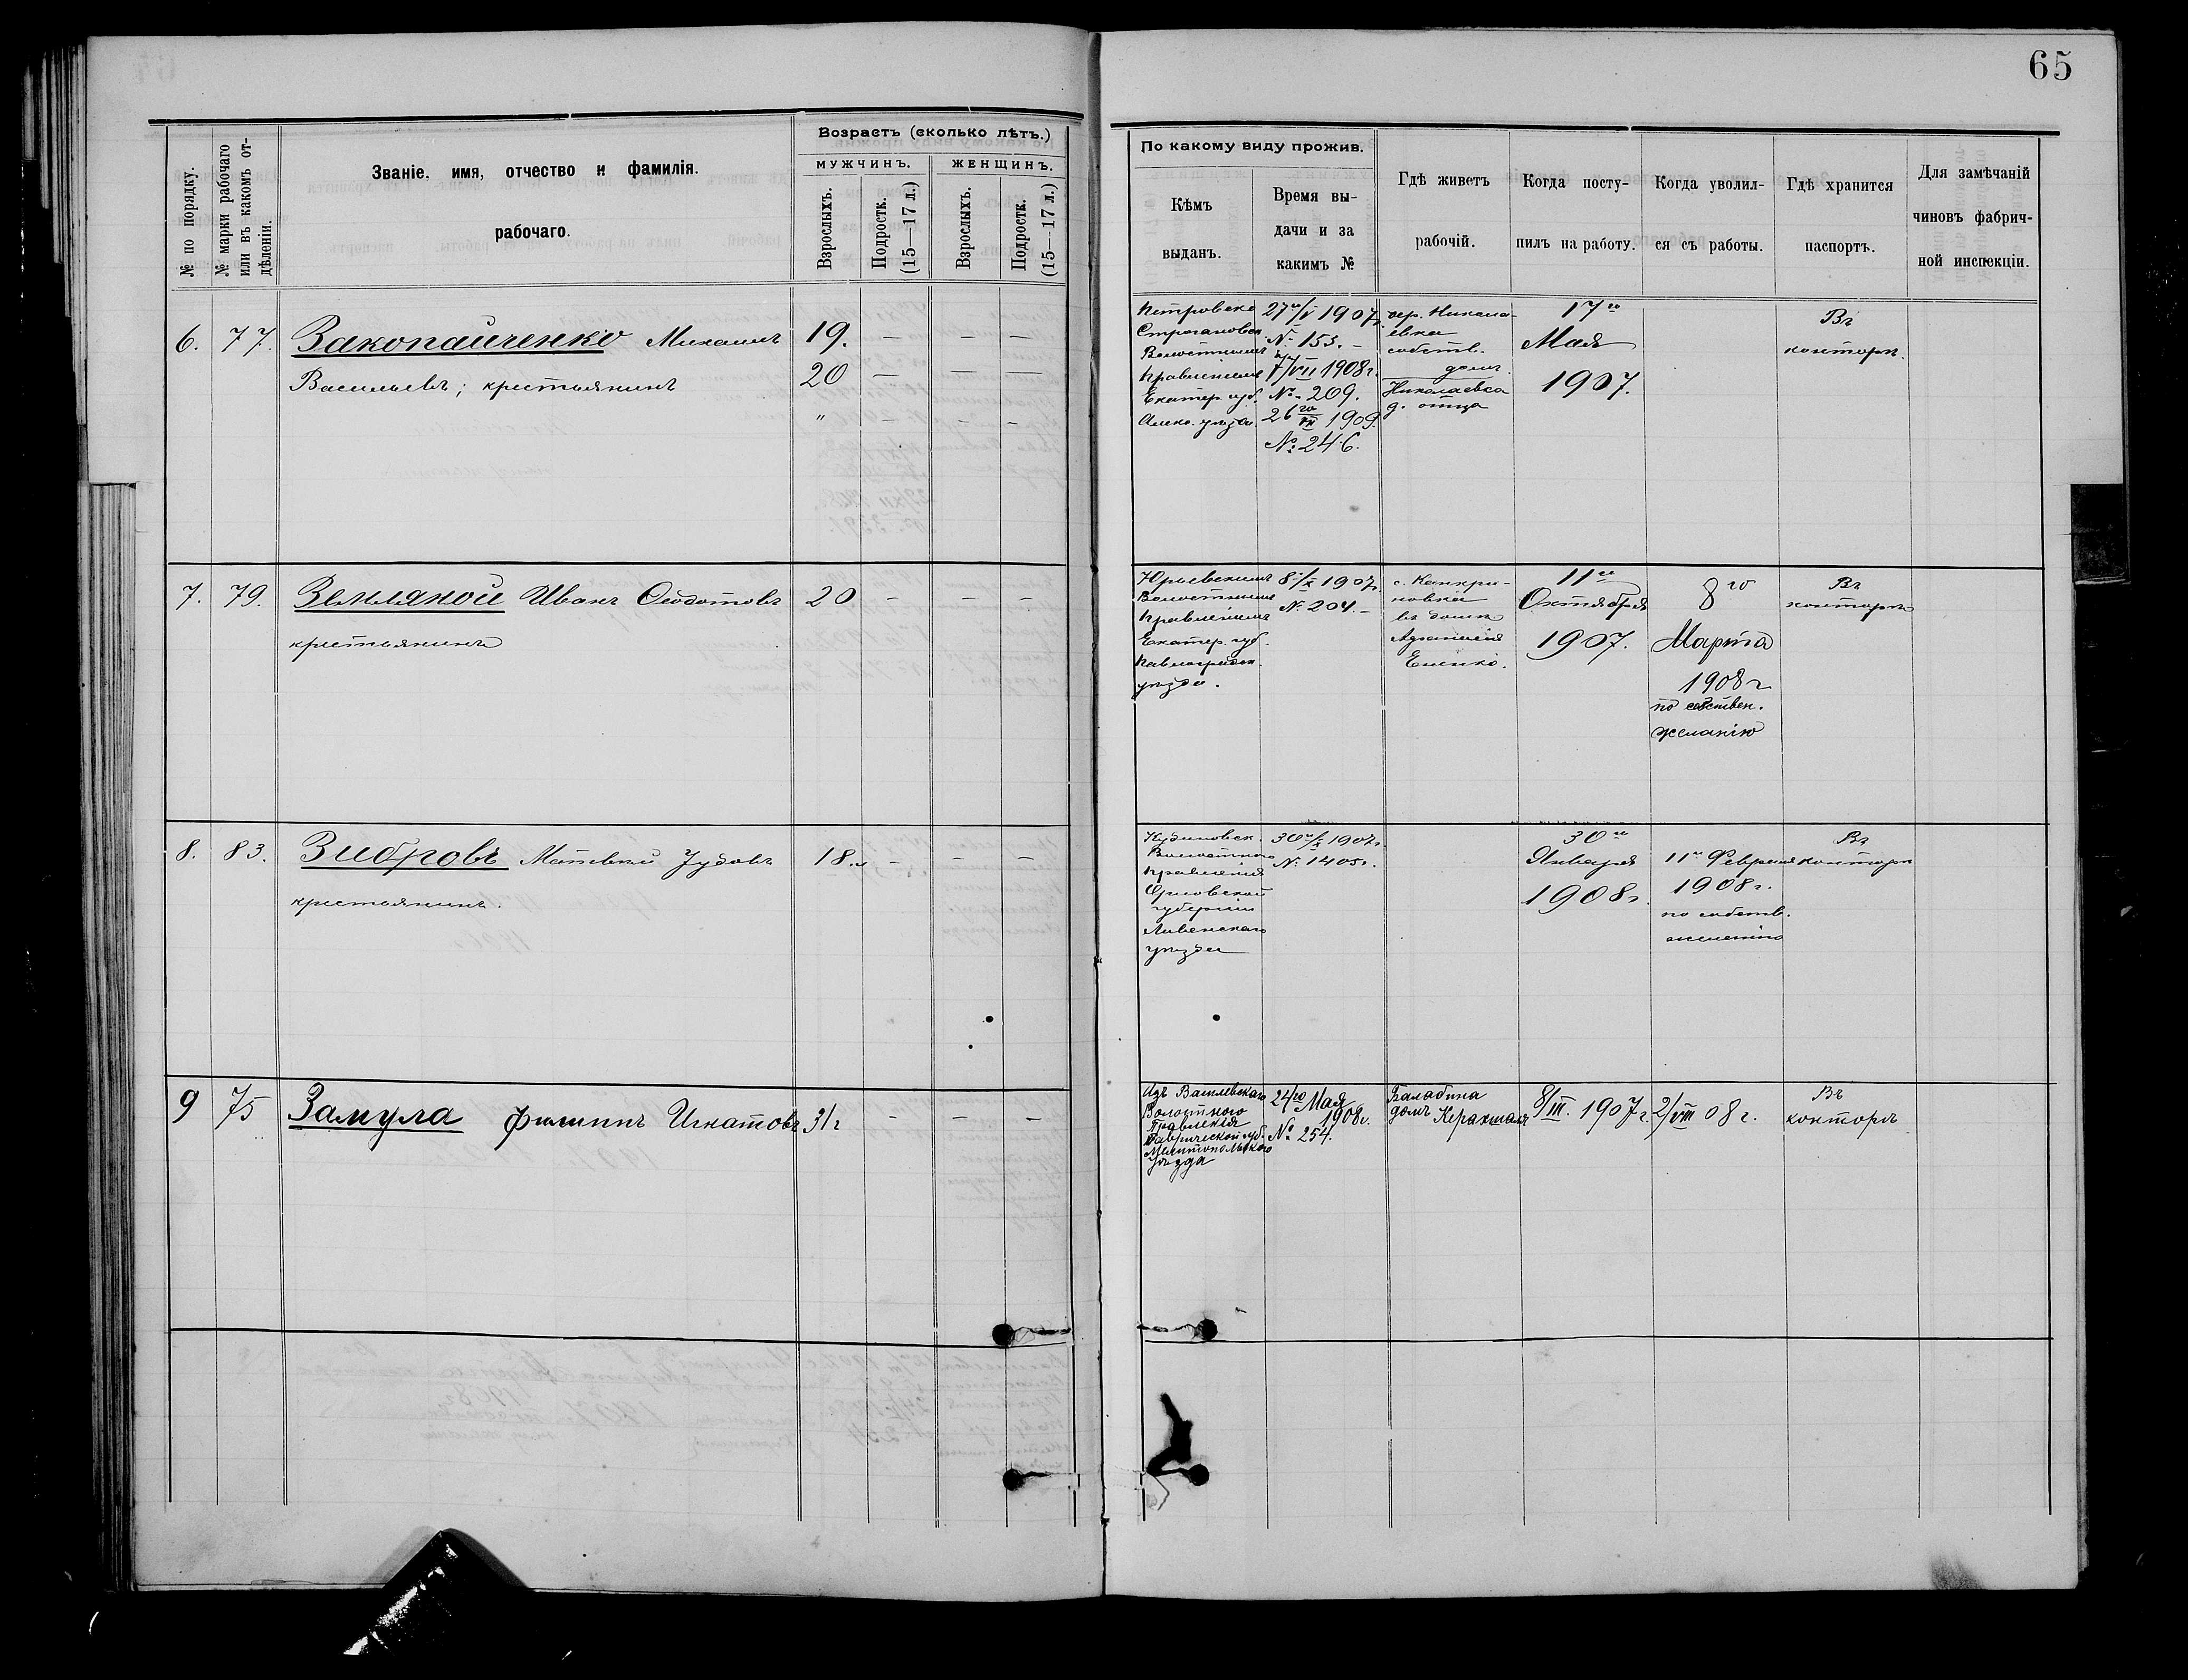 65
№ по порядку.
№ марки рабочаго
или въ какомъ от-
дѣленіи.
Званіе. имя, отчество и фамилія.
рабочаго.
Возрастъ (сколько лѣтъ.)
МУЖЧИНЪ.
ЖЕНЩИНЪ.
Взрослыхъ.
Подростк.
(15—17 л.)
Взрослыхъ.
Подростк.
(15—17 л.)
По какому виду прожив.
Кѣмъ
выданъ.
Время вы-
дачи и за
какимъ №
Гдѣ живетъ
рабочій.
Когда посту-
пилъ на работу.
Когда уволил-
ся съ работы.
Гдѣ хранится
паспортъ.
Для замѣчаній
чиновъ фабрич-
ной инспекціи.
6. 77. Закопайченко Михаилъ
Васильевъ; крестьянинъ
19. — — —
20 — — —
" — — —
Петровско
Строгановск
Волостнымъ
Правленіемъ
Екатер. губ.
Алекс. уѣзда
1907г.
№ 153. —
VII 1908г.
№ 209.
26го 1909.
№ 246.
дер. Никола-
евка
собств.
домъ.
Николаевка
д. отца
17го
Мая
1907.
Въ
конторѣ.
7. 79. Земляной Иванъ Ѳеодотовъ
крестьянинъ
20 — — —
Юрьевскимъ
Волостнымъ
Правленіемъ
Екатер. губ.
Павлоградск.
уѣзда.
8го/X 1907г.
№ 204. —
с. Канкри-
новка
въ домѣ
Еленко.
11го
Октября
1907.
8го
Марта
1908г
по собствен.
желанію
Въ
конторѣ
8. 83. Зибровъ Матвей
крестьянинъ.
18. — — —
Волостного
Правленія
Орловской
губерніи
Ливенскаго
уѣзда
30го/X 1907г
№ 1405.
30го
Января
1908г.
11го Февраля
1908г.
по собств.
желанію
Въ
конторѣ
9 75 Замула Филиппъ Игнатовъ
31г — — —
Изъ Васильевскаго
Волостного
Правленія
Таврической губ.
Мелитопольского
уѣзда
24го Мая
1908г.
№ 254.
Балабина
домъ
8/III. 1907г.
2/VIII 08г.
Въ
конторѣ